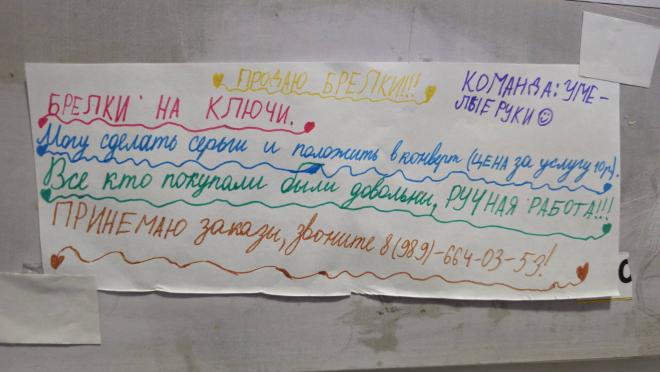 ПРОДАЮ БРЕЛКИ!!!
КОМАНДА: УМЕ-
ЛЫЕ РУКИ
БРЕЛКИ НА КЛЮЧИ.
Могу сделать серьги и положить в конверт (ЦЕНА за услугу 10р).
Все кто покупали били довольни, РУЧНАЯ РАБОТА!!!
ПРИНЕМАЮ закази, звоните 8(989)-664-03-53!